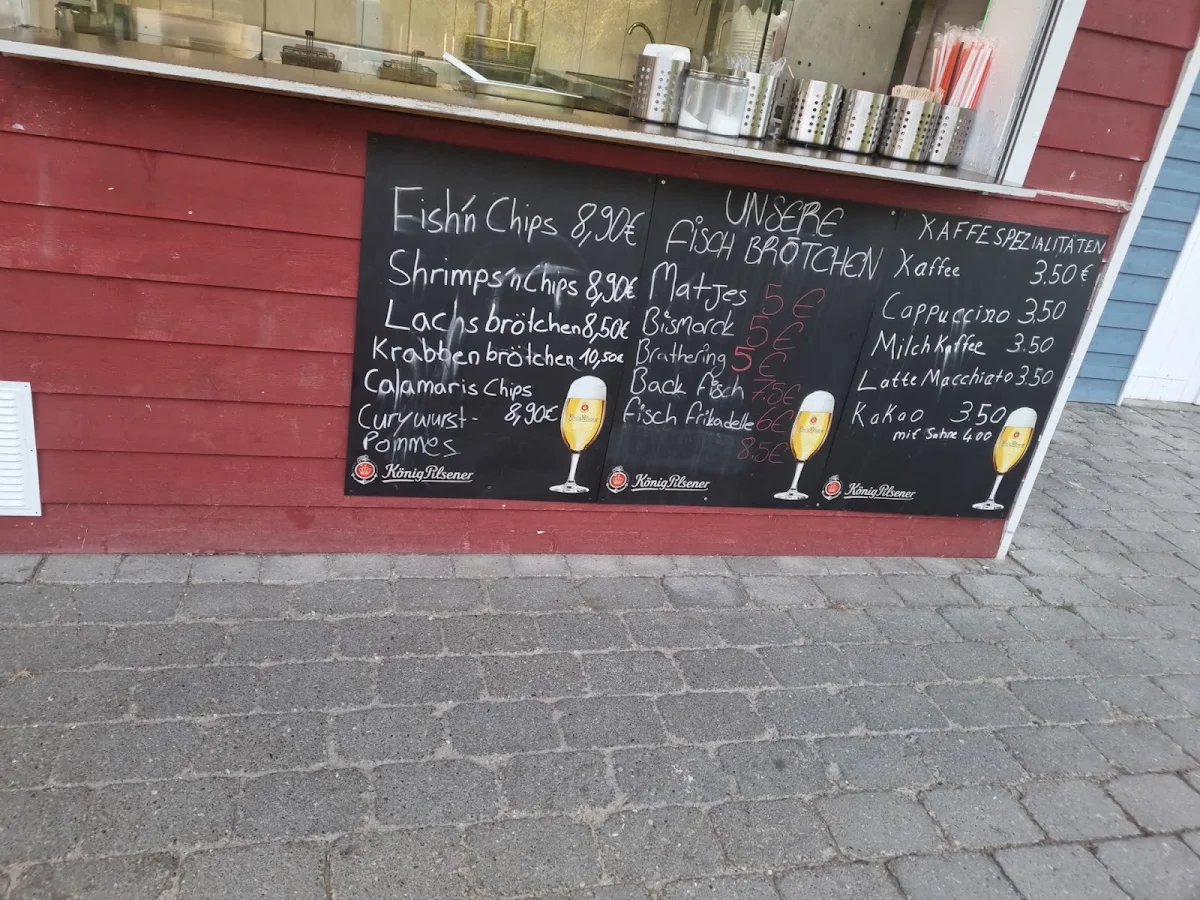 Fish'n Chips 8,90€
Shrimps'n Chips 8,90€
Lachsbrötchen 8,50€
Krabbenbrötchen 10,50€
Calamaris Chips
8,90€
Currywurst-
Pommes
König Pilsener
UNSERE
FISCH BRÖTCHEN
Matjes 5€
Bismarck 5€
Brathering 5€
Back fisch 7.5€
Fisch Frikadelle 6€
8.5€
König Pilsener
KAFFESPEZIALITÄTEN
Kaffee 3.50€
Cappuccino 3.50
Milch Kaffee 3.50
Latte Macchiato 3.50
Kakao 3.50
mit Sahne 4.00
König Pilsener